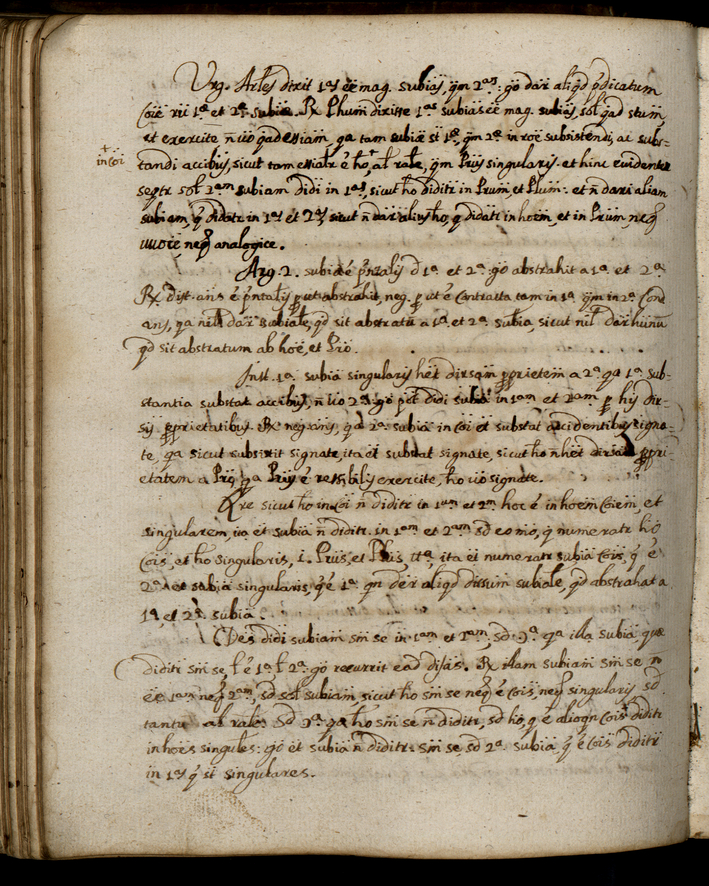 Urg. Arles dixit 1as eē mag. subias, qm 2as: go dari aliqd pdicatum
Coie rii 1a et 2a subiæ. Rx Phum dixisse 1as subias eē mag. subias, sol qad stum
et exercite n uō qad essiam, qa tam subia st 1a, qm 2a in roe subsistendi, ac subs-
+ in coi
tandi accibus, sicut tam essialr ē ho, + al rale, qm Prus singularis. et hinc evidenter
seqtr sol 2am subiam didi in 1as, sicut ho diditr in Prum, et Plum. et n dari aliam
subiam, q diditr in 1as et 2as, sicut n dari alius ho, q diditr in hoem, et in Prum, neq
uuoiē, neq analogice.
Arg. 2. subia ē pntalis d 1a et 2a: go abstrahit a 1a et 2a
Rx dist. ans ē pntalis put abstrahit, neg. put ē Contracta tam in 1a qm in 2a Con
ans, qa nil dar subiale, qd sit abstratū a 1a et 2a subia, sicut nil dar hunu
qd sit abstratum ab hoē, et Pro.
Inst. 1a subia singularis het dirsam pprietem a 2a qa 1a sub-
stantia substat accibus, n uō 2a: go pot didi subia in 1am et 2am p his dir-
sis pprietatibus. Rx neg ans, qa 2a subia in coi et substat accidentibus signa-
te, qa sicut subsistit signate, ita et substat signate, sicut ho n het dirsam ppri-
etatem a Pro, qa Prus ē resibilis exercite, ho uō signate.
Qre sicut ho in coi n diditr in 1um et 2m hoc ē in hoem Coiem, et
singularem, ita et subia n diditr in 1am et 2am, sd eo mo, q numeratr ho
Cois, et ho singularis, i. Prus, et Plus, ita ei numeratr subia Cois, q ē
2a et subia singularis, q ē 1a qn der aliqd dissum subiale, qd abstrahat a
1a et 2a subia.
Des didi subiam sm se in 1am et 2am, sd 3a qa illa subia quæ
diditr sm se, l ē 1a l 2a: go recurrit ead difas. Rx illam subiam sm se n
eē 1am neq 2am, sd sol subiam, sicut ho sm se neq ē Cois, neq singularis sd
tantu al rale. Sd 3a qa ho sm se n diditr, sd ho, q ē alioqn Cois diditr
in hoēs singules: go et subia n diditr sm se, sd 2a subia, q ē Cois diditr
in 1as q st singulares.